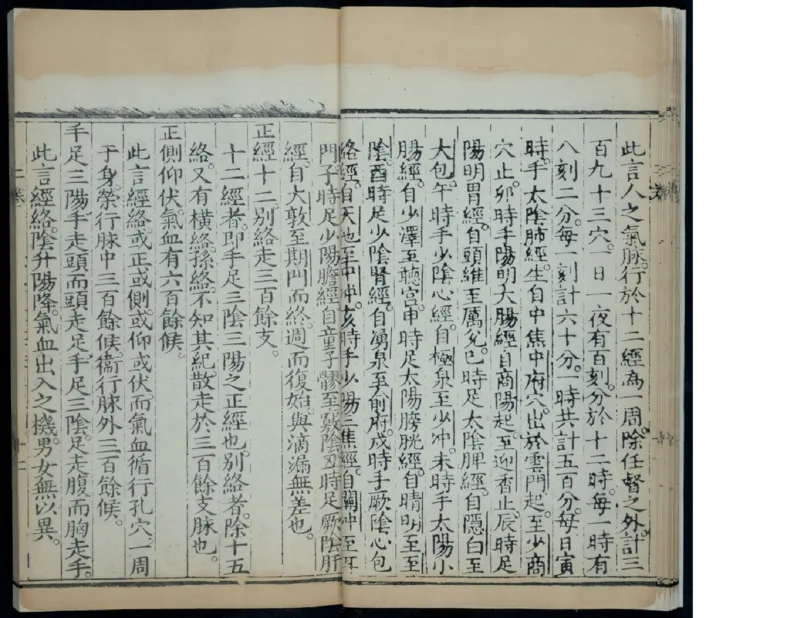 此言人之氣脉行於十二經為一周除任督之外計三
百九十三穴一日一夜有百刻分於十二時每一時有
八刻二分每一刻計六十分一時共計五百分每日寅
時手太陰肺經生自中焦中府穴出於雲門起至少商
穴止卯時手陽明大腸經自商陽起至迎香止辰時足
陽明胃經自頭維至厲兌巳時足太陰脾經自隱白至
大包午時手少陰心經自極泉至少冲未時手太陽小
腸經自少澤至聽宮申時足太陽膀胱經自睛明至至
陰酉時足少陰腎經自湧泉至俞府戌時手厥陰心包
絡經自天池至中冲亥時手少陽三焦經自關冲至耳
門子時足少陽膽經自童子髎至竅陰丑時足厥陰肝
經自大敦至期門而終過而復始與滴漏無差也
正經十二別絡走三百餘支
十二經者即手足三陰三陽之正經也別絡者除十五
絡又有橫絡孫絡不知其紀散走於三百餘支脉也
正側仰伏氣血有六百餘候
此言經絡或正或側或仰或伏而氣血循行孔穴一周
于身榮行脉中三百餘候衞行脉外三百餘候
手足三陽手走頭而頭走足手足三陰足走腹而胸走手
此言經絡陰升陽降氣血出入之機男女無以異